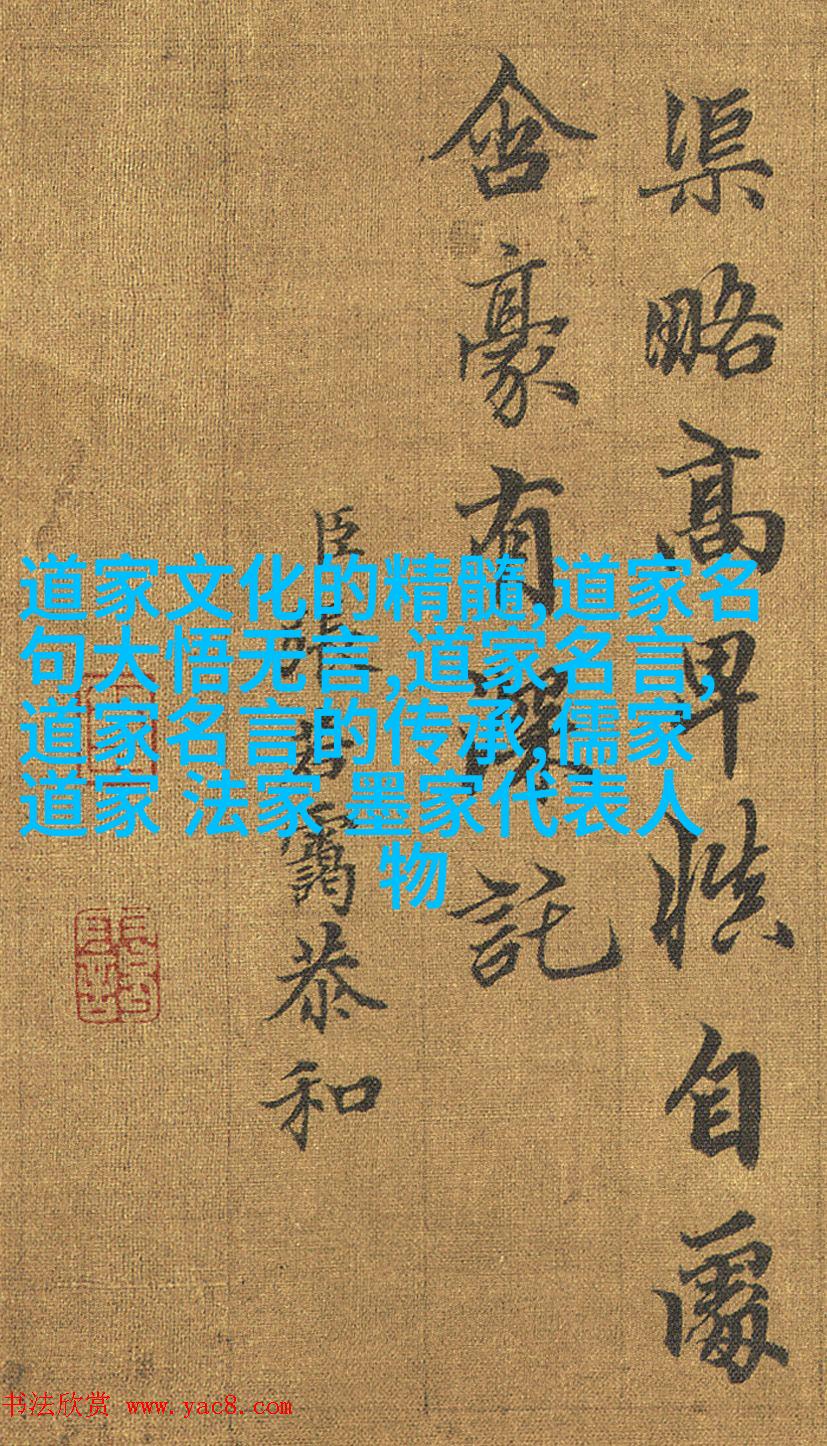 渠略高卑慎自處
含豪有深託
臣張若靄恭和
道家文化的精髓,道家名
句大悟无言,道家名言,
道家名言的传承,儒家
道家 法家 墨家代表人
物
书法欣赏 www.yac8.com